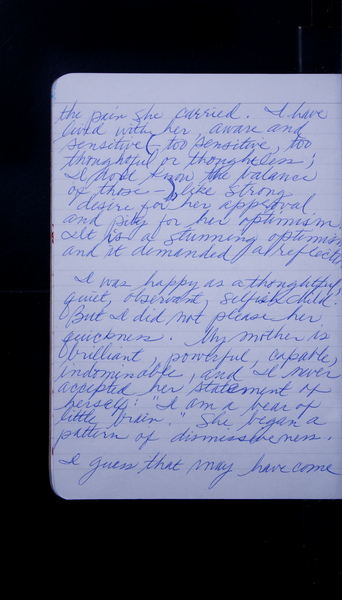 the pain she carried. I have
lived with her, aware and
sensitive (too sensitive, too
thoughtful or thoughtless;
I don't know the balance
of those –) like strong
desire for her approval
and pity for her optimism.
It is a stunning optimism
and it demanded a reflection
I was happy as a thoughtful,
quiet, observant, selfish child.
But I did not please her
quickness. My mother is
brilliant, powerful, capable,
indomindable, and I never
accepted her statement of
herself: "I am a bear of
little brain." She began a
pattern of dismissiveness.
I guess that may have come